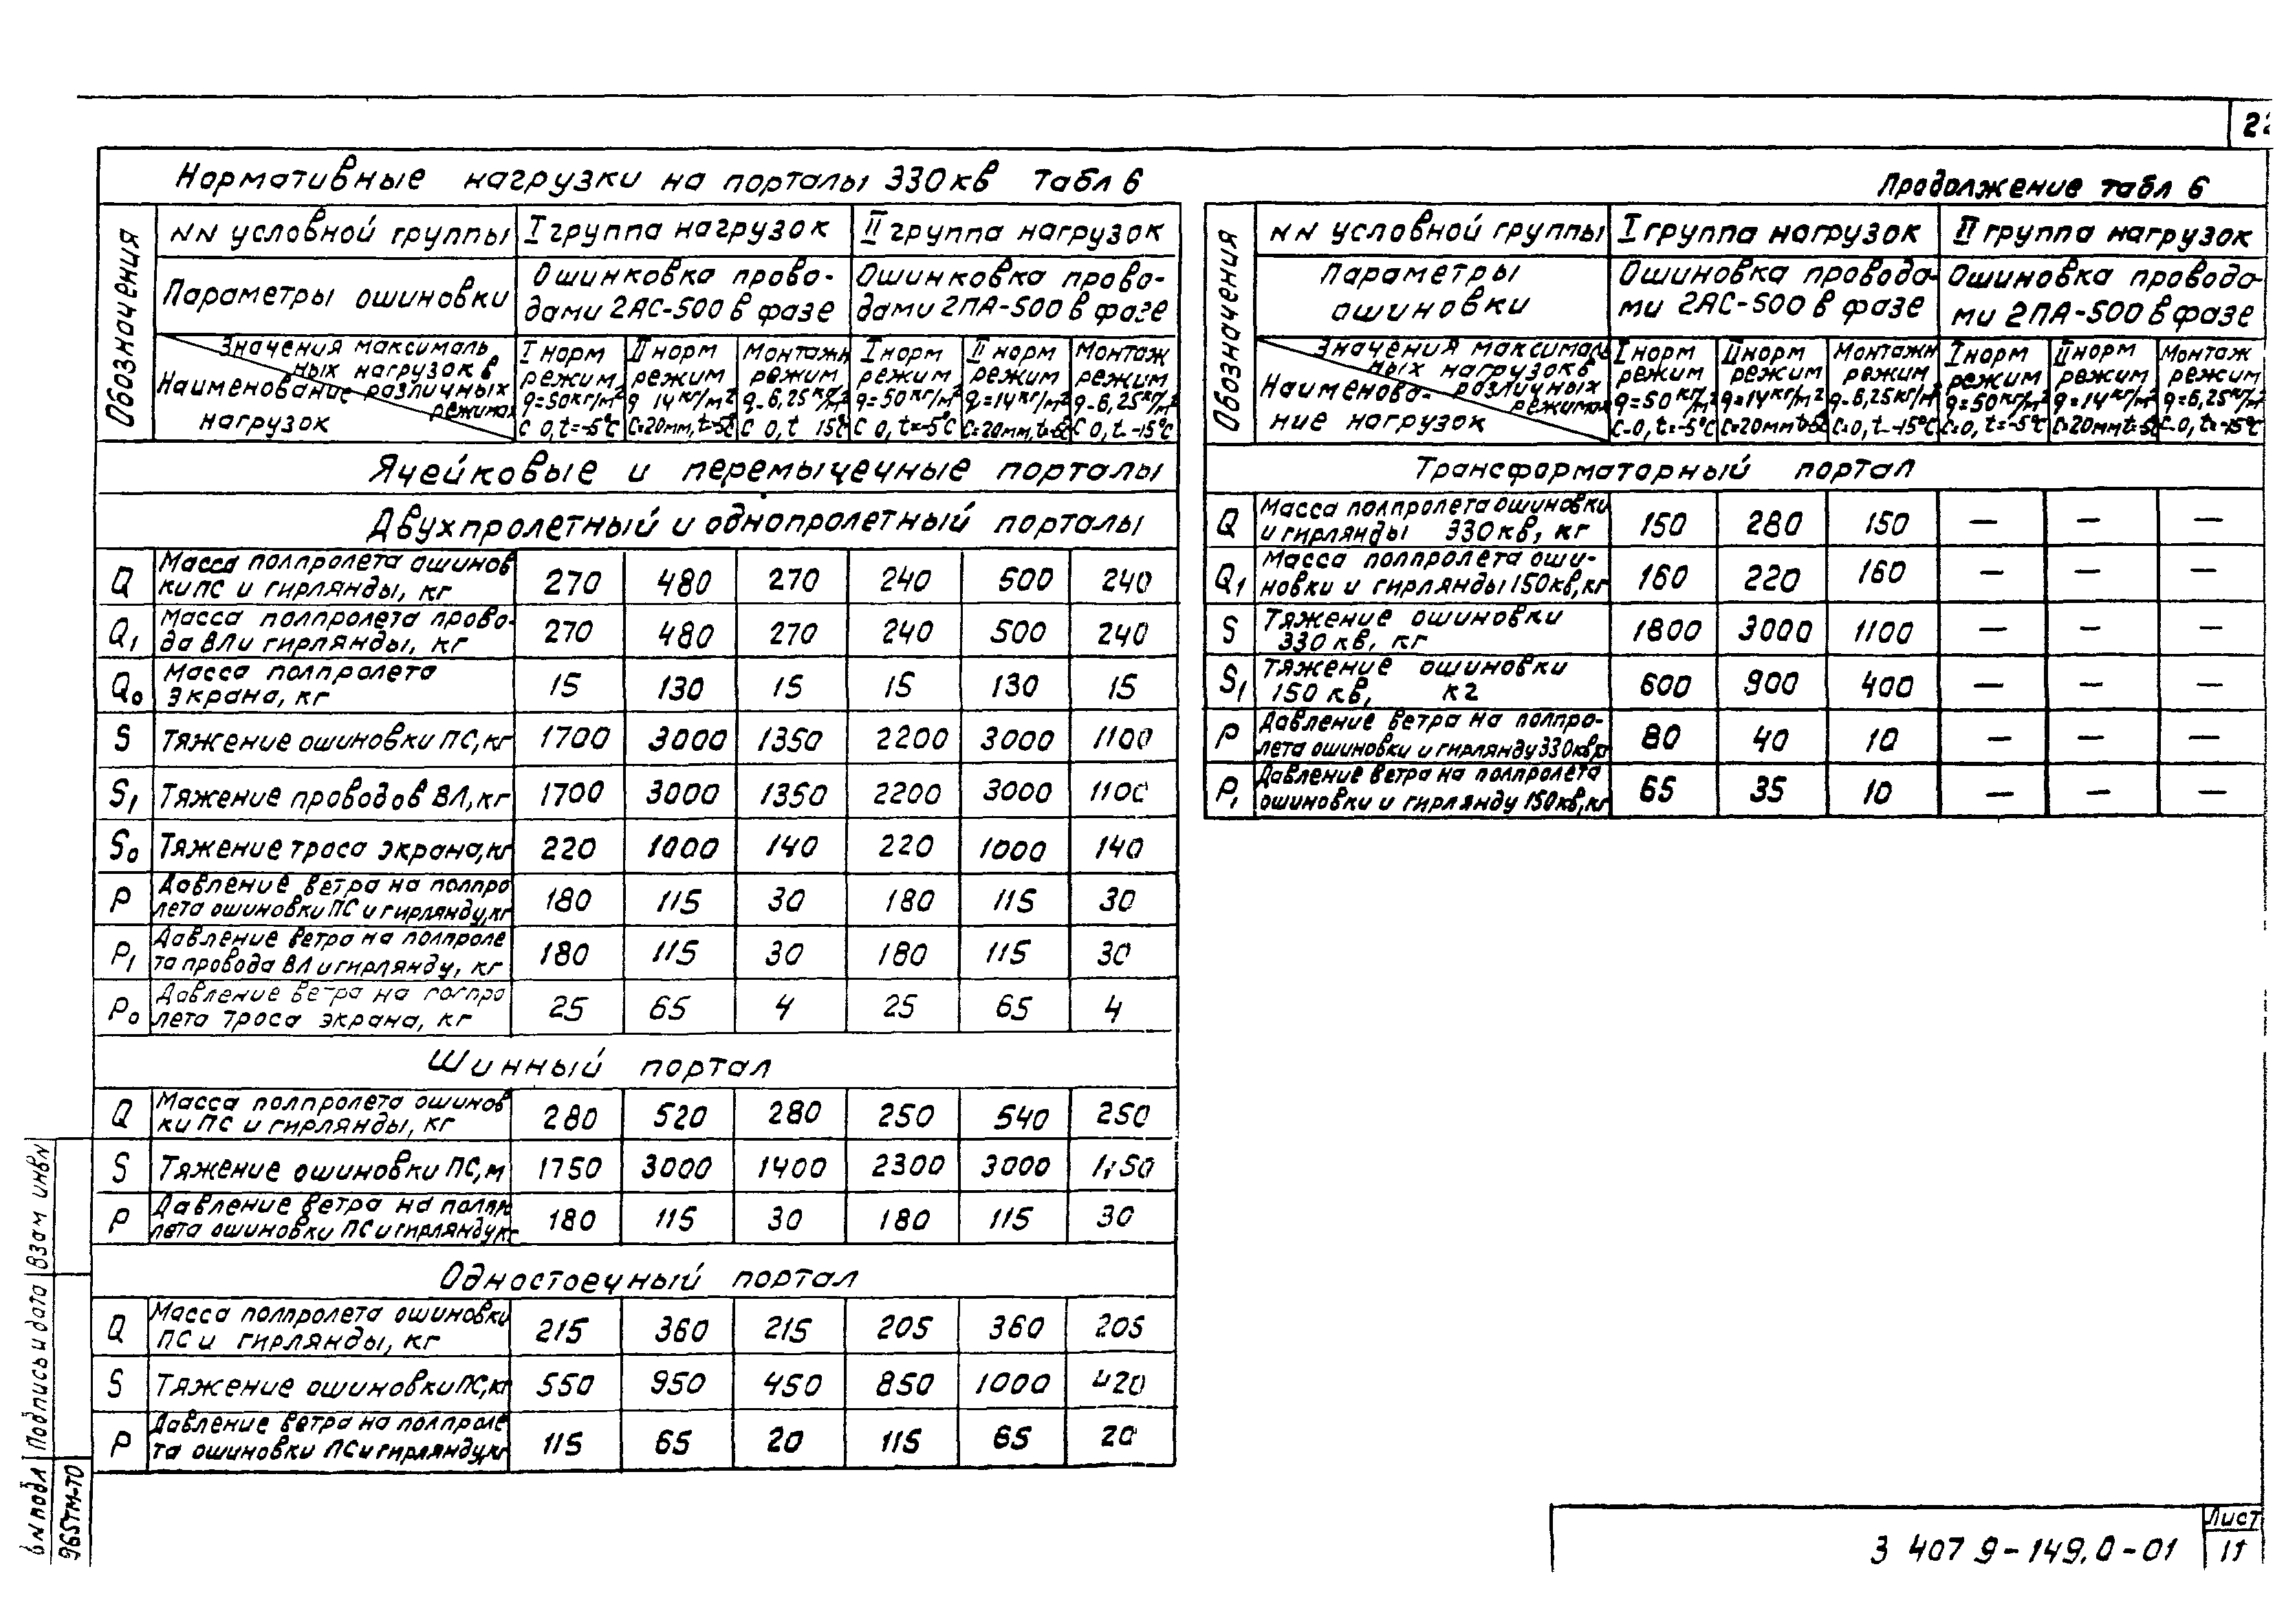 22
Нормативные нагрузки на порталы 330кв Табл 6
Обозначения
NN условной группы I группа нагрузок II группа нагрузок
Параметры ошиновки
Ошинковка прово-
дами 2АС-500 в фазе
Ошинковка прово-
дами 2ПА-500 в фазе
Значения максималь
ных нагрузок в
различных
режимах
Наименование
нагрузок
I норм
режим
q=50кг/м²
С 0, t=-5°С
II норм
режим
q 14кг/м²
С=20мм, t=-5°С
Монтажн
режим
q-6,25кг/м²
С 0, t 15°С
I норм
режим
q=50кг/м²
С 0, t=-5°С
II норм
режим
q=14кг/м²
С=20мм, t=-5°С
Монтаж
режим
q-6,25кг/м²
С 0, t-15°С
Ячейковые и перемычечные порталы
Двухпролетный и однопролетный порталы
Q Масса полпролета ошинов
ки ПС и гирлянды, кг 270 480 270 240 500 240
Q1 Масса полпролета прово-
да ВЛ и гирлянды, кг 270 480 270 240 500 240
Q0 Масса полпролета
экрана, кг 15 130 15 15 130 15
S Тяжение ошиновки ПС, кг 1700 3000 1350 2200 3000 1100
S1 Тяжение проводов ВЛ, кг 1700 3000 1350 2200 3000 1100
S0 Тяжение троса экрана, кг 220 1000 140 220 1000 140
P Давление ветра на полпро
лета ошиновки ПС и гирлянду, кг 180 115 30 180 115 30
P1 Давление ветра на полпроле
та провода ВЛ и гирлянду, кг 180 115 30 180 115 30
P0 Давление ветра на полпро
лета троса экрана, кг 25 65 4 25 65 4
Шинный портал
Q Масса полпролета ошинов
ки ПС и гирлянды, кг 280 520 280 250 540 250
S Тяжение ошиновки ПС, м 1750 3000 1400 2300 3000 1150
P Давление ветра на полпр
лета ошиновки ПС и гирлянду кг 180 115 30 180 115 30
Одностоечный портал
Q Масса полпролета ошиновки
ПС и гирлянды, кг 215 360 215 205 360 205
S Тяжение ошиновки ПС, кг 550 950 450 850 1000 420
P Давление ветра на полпроле
та ошиновки ПС и гирлянду, кг 115 65 20 115 65 20
Продолжение табл 6
Обозначения
NN условной группы I группа нагрузок II группа нагрузок
Параметры
ошиновки
Ошиновка провода-
ми 2АС-500 в фазе
Ошиновка провода-
ми 2ПА-500 в фазе
Значения максималь
ных нагрузок в
различных
режимах
Наименова-
ние нагрузок
I норм
режим
q=50кг/м²
С-0, t=-5°С
II норм
режим
q=14кг/м²
С=20мм t-5°С
Монтажн
режим
q-6,25кг/м²
С=0, t-15°С
I норм
режим
q=50кг/м²
С=0, t=-5°С
II норм
режим
q=14кг/м²
С=20мм t=-5°С
Монтаж
режим
q=6,25кг/м²
С-0, t=-15°С
Трансформаторный портал
Q Масса полпролета ошиновки
и гирлянды 330кв, кг 150 280 150 — — —
Q1 Масса полпролета оши-
новки и гирлянды 150кв, кг 160 220 160 — — —
S Тяжение ошиновки
330 кв, кг 1800 3000 1100 — — —
S1 Тяжение ошиновки
150 кв, кг 600 900 400 — — —
P Давление ветра на полпро-
лета ошиновки и гирлянду 330кв кг 80 40 10 — — —
P1 Давление ветра на полпролета
ошиновки и гирлянду 150кв, кг 65 35 10 — — —
Взам инв N
Подпись и дата
в N подл
965тм-т0
3 407 9-149.0-01
Лист
11